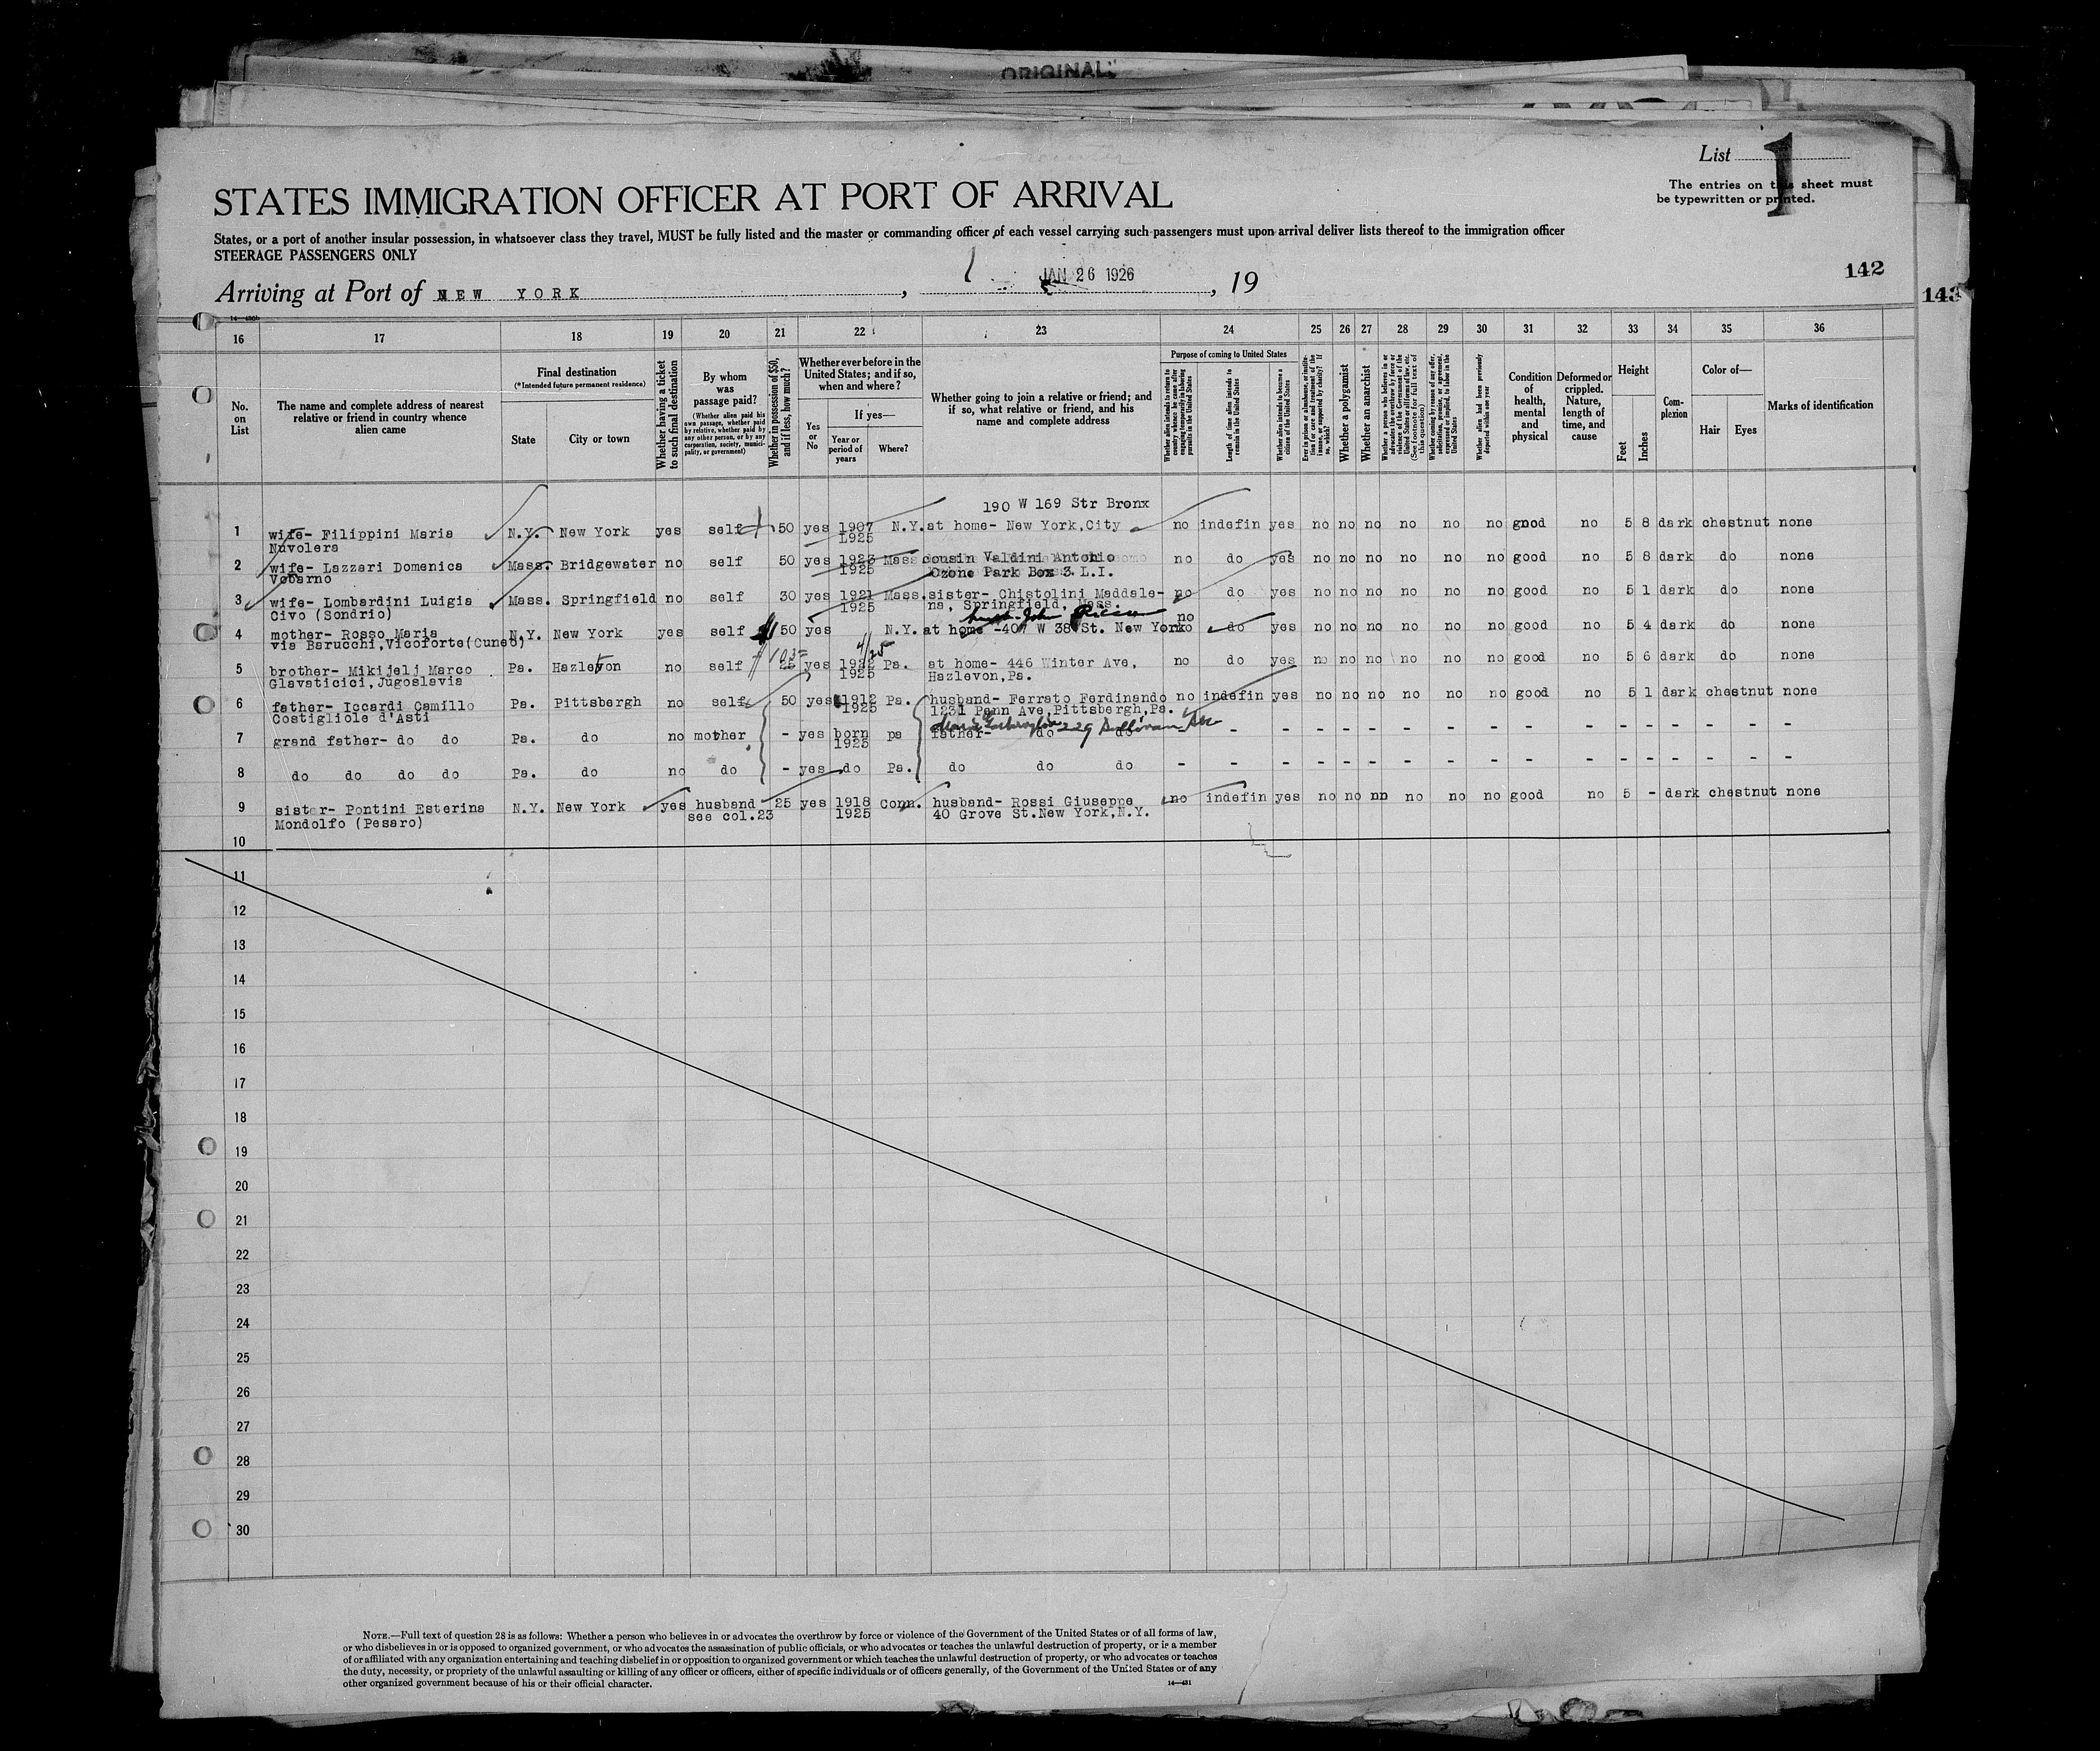 ORIGINAL
List 1
The entries on this sheet must
be typewritten or printed.
STATES IMMIGRATION OFFICER AT PORT OF ARRIVAL
States, or a port of another insular possession, in whatsoever class they travel, MUST be fully listed and the master or commanding officer of each vessel carrying such passengers must upon arrival deliver lists thereof to the immigration officer
STEERAGE PASSENGERS ONLY
Arriving at Port of NEW YORK , JAN 26 1926 , 19
142
143
16 17 18 19 20 21 22 23 24 25 26 27 28 29 30 31 32 33 34 35 36
No. on List
The name and complete address of nearest relative or friend in country whence alien came
Final destination
(*Intended future permanent residence)
State
City or town
Whether having a ticket to such final destination
By whom was passage paid?
(Whether alien paid his own passage, whether paid by relative, whether paid by any other person, or by any corporation, society, municipality, or government)
Whether in possession of $50, and if less, how much?
Whether ever before in the United States; and if so, when and where?
Yes or No
If yes—
Year or period of years
Where?
Whether going to join a relative or friend; and if so, what relative or friend, and his name and complete address
Purpose of coming to United States
Whether alien intends to return to country whence he came after engaging temporarily in laboring pursuits in the United States
Length of time alien intends to remain in the United States
Whether alien intends to become a citizen of the United States
Ever in prison or almshouse, or institution for care and treatment of the insane, or supported by charity? If so, which?
Whether a polygamist
Whether an anarchist
Whether a person who believes in or advocates the overthrow by force or violence of the Government of the United States or all forms of law, etc. (See footnote for full text of this question)
Whether coming by reason of any offer, solicitation, promise, or agreement, expressed or implied, to labor in the United States
Whether alien had been previously deported within one year
Condition of health, mental and physical
Deformed or crippled. Nature, length of time, and cause
Height
Feet
Inches
Complexion
Color of—
Hair
Eyes
Marks of identification
190 W 169 Str Bronx
1 wife- Filippini Maria N.Y. New York yes self 50 yes 1907 N.Y. at home- New York,City no indefin yes no no no no no no good no 5 8 dark chestnut none
Nuvolera 1925
2 wife- Lazzari Domenica Mass. Bridgewater no self 50 yes 1923 Mass cousin Valdini Antonio no do yes no no no no no no good no 5 8 dark do none
Vobarno 1925 Ozone Park Box 3 L.I.
3 wife- Lombardini Luigia Mass. Springfield no self 30 yes 1921 Mass. sister- Chistolini Maddale- no do yes no no no no no no good no 5 1 dark do none
Civo (Sondrio) 1925 na, Springfield, Mass.
John Ricca no
4 mother- Rosso Maria N.Y. New York yes self 50 yes N.Y. at home -407 W 38 St. New York do yes no no no no no no good no 5 4 dark do none
via Barucchi,Vicoforte(Cuneo)
4/25
5 brother- Mikijelj Marco Pa. Hazleton no self 25 yes 1922 Pa. at home- 446 Winter Ave, no do yes no no no no no no good no 5 6 dark do none
Glavaticici,Jugoslavia 1925 Hazlevon,Pa.
6 father- Iccardi Camillo Pa. Pittsbergh no self 50 yes 1912 Pa. husband- Ferrato Ferdinando no indefin yes no no no no no no good no 5 1 dark chestnut none
Costigliole d'Asti 1925 1231 Penn Ave,Pittsbergh,Pa.
229 Sullivan
7 grand father- do do Pa. do no mother - yes born ps father- do do - - - - - - - - - - - - - - -
1925
8 do do do do Pa. do no do - yes do Pa. do do do - - - - - - - - - - - - - - -
9 sister- Pontini Esterina N.Y. New York yes husband 25 yes 1918 Conn. husband- Rossi Giuseppe no indefin yes no no no no no no good no 5 - dark chestnut none
Mondolfo (Pesaro) see col.23 1925 40 Grove St.New York,N.Y.
10
11
12
13
14
15
16
17
18
19
20
21
22
23
24
25
26
27
28
29
30
NOTE.—Full text of question 28 is as follows: Whether a person who believes in or advocates the overthrow by force or violence of the Government of the United States or of all forms of law,
or who disbelieves in or is opposed to organized government, or who advocates the assassination of public officials, or who advocates or teaches the unlawful destruction of property, or is a member
of or affiliated with any organization entertaining and teaching disbelief in or opposition to organized government or which teaches the unlawful destruction of property, or who advocates or teaches
the duty, necessity, or propriety of the unlawful assaulting or killing of any officer or officers, either of specific individuals or of officers generally, of the Government of the United States or of any
other organized government because of his or their official character.
14—431